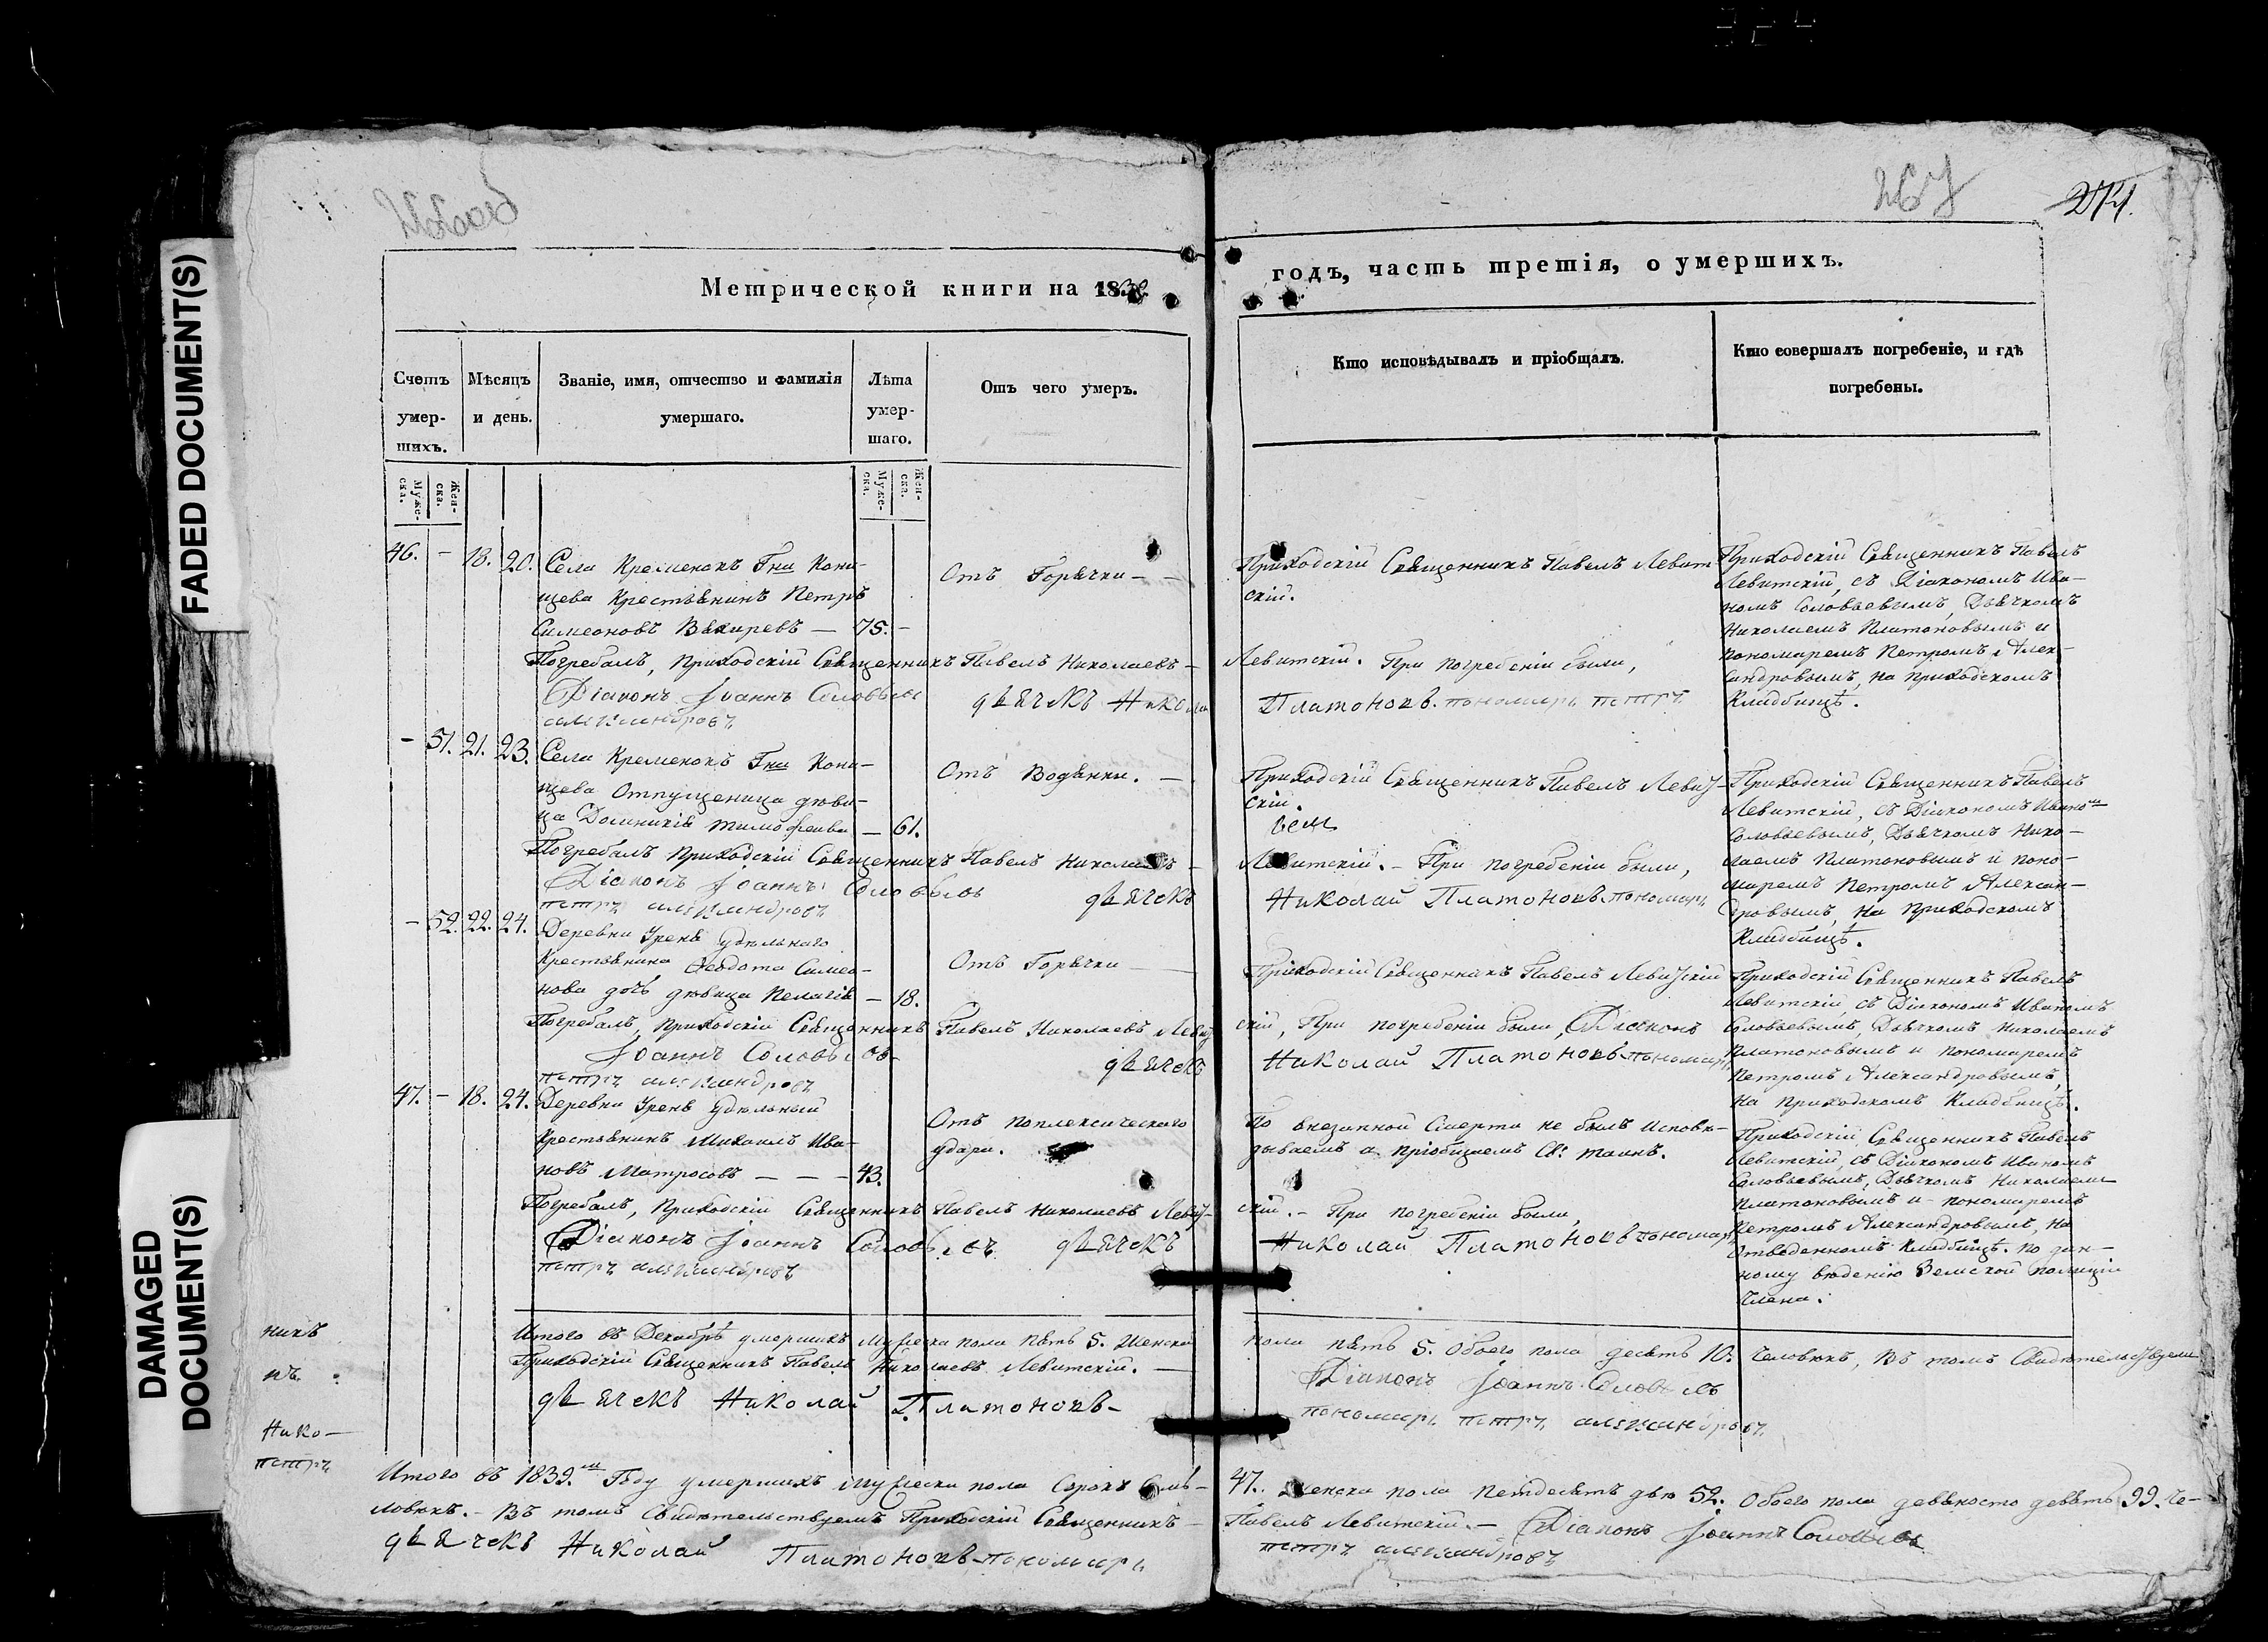 FADED DOCUMENT(S)
DAMAGED
DOCUMENT(S)
267
274.
Метрической книги на 1839.
годъ, часть третія, о умершихъ.
Счетъ
умер-
шихъ.
Муже-
ска.
Жен-
ска.
Мѣсяцъ
и день.
Званіе, имя, отчество и фамилія
умершаго.
Лѣта
умер-
шаго.
Муже-
ска.
Жен-
ска.
Отъ чего умеръ.
Кто исповѣдывалъ и пріобщалъ.
Кто совершалъ погребеніе, и гдѣ
погребены.
46. – 18. 20. Села Кременокъ Гна Кони-
щева Крестьянинъ Петръ
Симеоновъ Вяхиревъ — 75. –
Отъ Горячки – –
Приходскій Священникъ Павелъ Левит
скій.
Приходскій Священникъ Павелъ
Левитскій, съ Діакономъ Ива-
номъ Соловьевымъ, Дьячкомъ
Николаемъ Платоновымъ и
пономаремъ Петромъ Алек-
сандровымъ, на приходскомъ
Кладбищѣ.
Погребалъ, приходскій Священникъ Павелъ Николаевъ – Левитскій. При погребеніи были,
Діаконъ Іоаннъ Соловьевъ дьячекъ Никола Платоновъ. пономарь петръ
александровъ
– 51. 21. 23. Села Кременокъ Гна Кони-
щева Отпущеница дѣви-
ца Домникія Тимофеива — 61.
Отъ Водянки. —
Приходскій Священникъ Павелъ Левит-
скій.
Приходскій Священникъ Павелъ
Левитскій, съ Діакономъ Иваномъ
Соловьевымъ, Дьячкомъ Нико-
лаемъ Платоновымъ и поно-
маремъ Петромъ Алексан-
дровымъ, на приходскомъ
Кладбищѣ.
Погребалъ приходскій Священникъ Павелъ Николаевъ – Левитскій. – При погребеніи были,
Діаконъ Іоаннъ Соловьевъ дьячекъ Николай Платоновъ. пономарь
петръ александровъ
– 52. 22. 24. Деревни Урень удѣльнаго
Крестьянина Ѳеодота Симео-
нова дочь дѣвица Пелагія – 18.
Отъ Горячки — —
Приходскій Священникъ Павелъ Левитскій
Приходскій Священникъ Павелъ
Левитскій, съ Діакономъ Иваномъ
Соловьевымъ, Дьячкомъ Николаемъ
Платоновымъ и пономаремъ
Петромъ Александровымъ,
на приходскомъ Кладбищѣ.
Погребалъ, приходскій Священникъ Павелъ Николаевъ Левит скій, При погребеніи были, Діаконъ
Іоаннъ Соловьевъ дьячекъ Николай Платоновъ. пономарь
петръ александровъ
47. – 18. 24. Деревни Урень Удѣльный
Крестьянинъ Михаилъ Ива-
новъ Матросовъ — — – 43.
Отъ поплексическаго
удара.
По внезапной Смерти не былъ исповѣ-
дываемъ и пріобщаемъ Св: таинъ.
Приходскій Священникъ Павелъ
Левитскій, съ Діакономъ Иваномъ
Соловьевымъ, Дьячкомъ Николаемъ
Платоновымъ и пономаремъ
Петромъ Александровымъ, на
отведенномъ Кладбищѣ. по дан-
ному вѣденію Земской полиціи
Члена.
Погребалъ, Приходскій Священникъ Павелъ Николаевъ Левит- скій. – При погребеніи были,
Діаконъ Іоаннъ Соловьевъ дьячекъ Николай Платоновъ пономарь
петръ александровъ
Итого въ Декабрѣ умершихъ Мужеска пола пять 5. Женска пола пять 5. Обоего пола десять 10. Человѣкъ, Въ томъ Свидѣтельствуемъ
Приходскій Священникъ Павелъ Николаевъ Левитскій. — Діаконъ Іоаннъ Соловьевъ
дьячекъ Николай Платоновъ – пономарь петръ александровъ
никъ
нъ.
Нико—
петръ
Итого въ 1839.мъ Году умершихъ Мужеска пола Сорокъ Семь – 47. Женска пола пятдесятъ двѣ 52. Обоего пола девяносто девять 99. Че-
ловѣкъ. – Въ томъ Свидѣтельствуемъ Приходскій Священникъ – Павелъ Левитскій. – Діаконъ Іоаннъ Соловьевъ
дьячекъ Николай Платоновъ – пономарь петръ александровъ